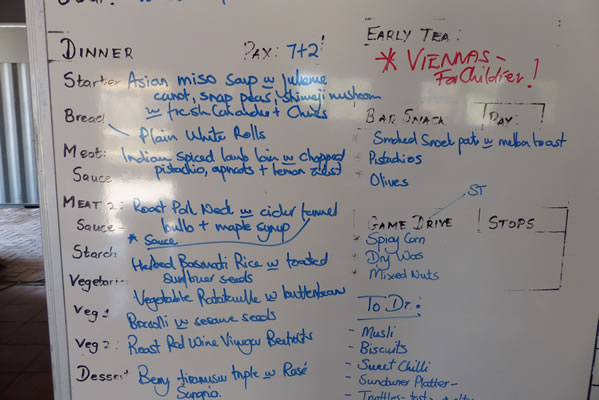 DINNER PAX: 7+2!
Starter Asian miso soup w julienne
carrot, snap peas, shimeji mushroom
w fresh Coriander + Chives
Bread Plain White Rolls
Meat: Indian Spiced lamb loin w chopped
Sauce pistachio, apricots + lemon zest
MEAT 2: Roast Pork Neck w cider fennel
Sauce - bulb + maple syrup
* Sauce
Starch Herbed Basmati Rice w toasted
sunflower seeds
Vegetarian Vegetable Ratatouille w butterbean
Veg 1 Broccoli w sesame seeds
Veg 2: Roast Red Wine Vinegar Beetroots
Dessert Berry tiramisu triple w Rosé
Sangria.
EARLY TEA:
* VIENNAS -
For Children!
BAR SNACK DAY:
* Smoked Snoek pate w melba toast
* Pistachios
* Olives
ST
GAME DRIVE STOPS
* Spicy Corn
* Dry Wors
* Mixed Nuts
To Do:
- Musli
- Biscuits
- Sweet Chilli
- Sundowner Platter -